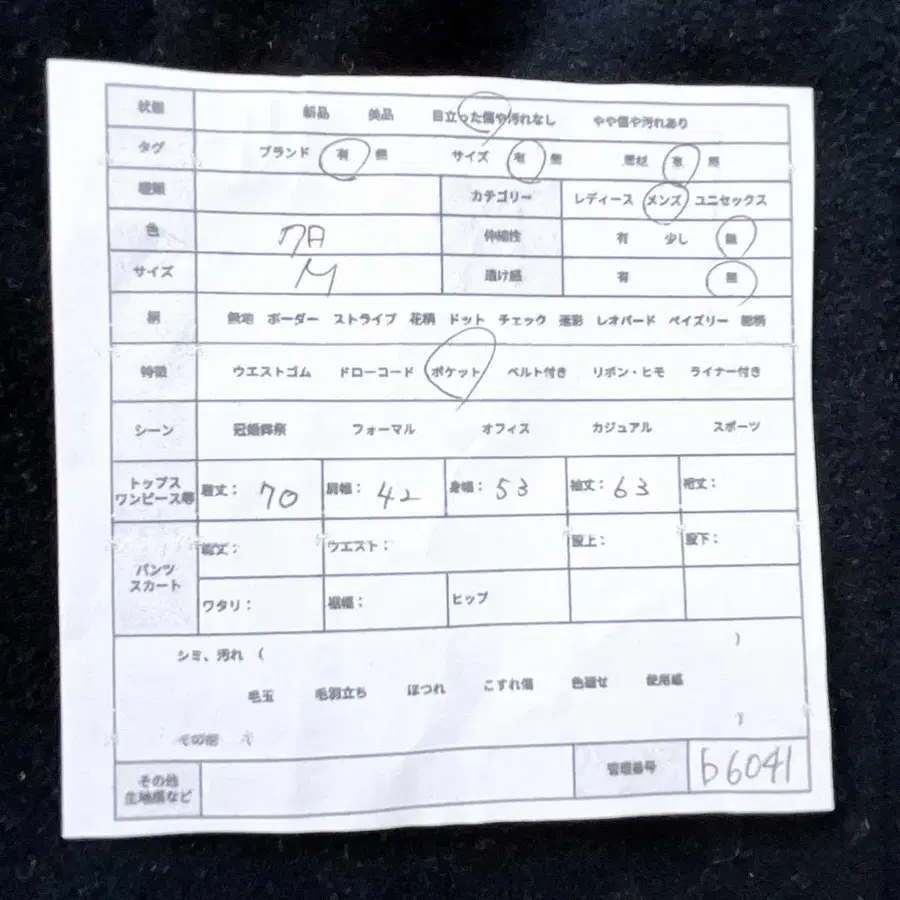 状態 新品 美品 目立った傷や汚れなし やや傷や汚れあり
タグ ブランド 有 無 サイズ 有 無 素材 有 無
種類 カテゴリー レディース メンズ ユニセックス
色 伸縮性 有 少し 無
サイズ M 透け感 有 無
柄 無地 ボーダー ストライプ 花柄 ドット チェック 迷彩 レオパード ペイズリー 総柄
特徴 ウエストゴム ドローコード ポケット ベルト付き リボン・ヒモ ライナー付き
シーン 冠婚葬祭 フォーマル オフィス カジュアル スポーツ
トップス
ワンピース等 着丈: 70 肩幅: 42 身幅: 53 袖丈: 63 裄丈:
パンツ
スカート 総丈: ウエスト: 股上: 股下:
ワタリ: 裾幅: ヒップ
シミ、汚れ ( )
毛玉 毛羽立ち ほつれ こすれ傷 色褪せ 使用感
その他 ( )
その他
生地感など 管理番号 b6041